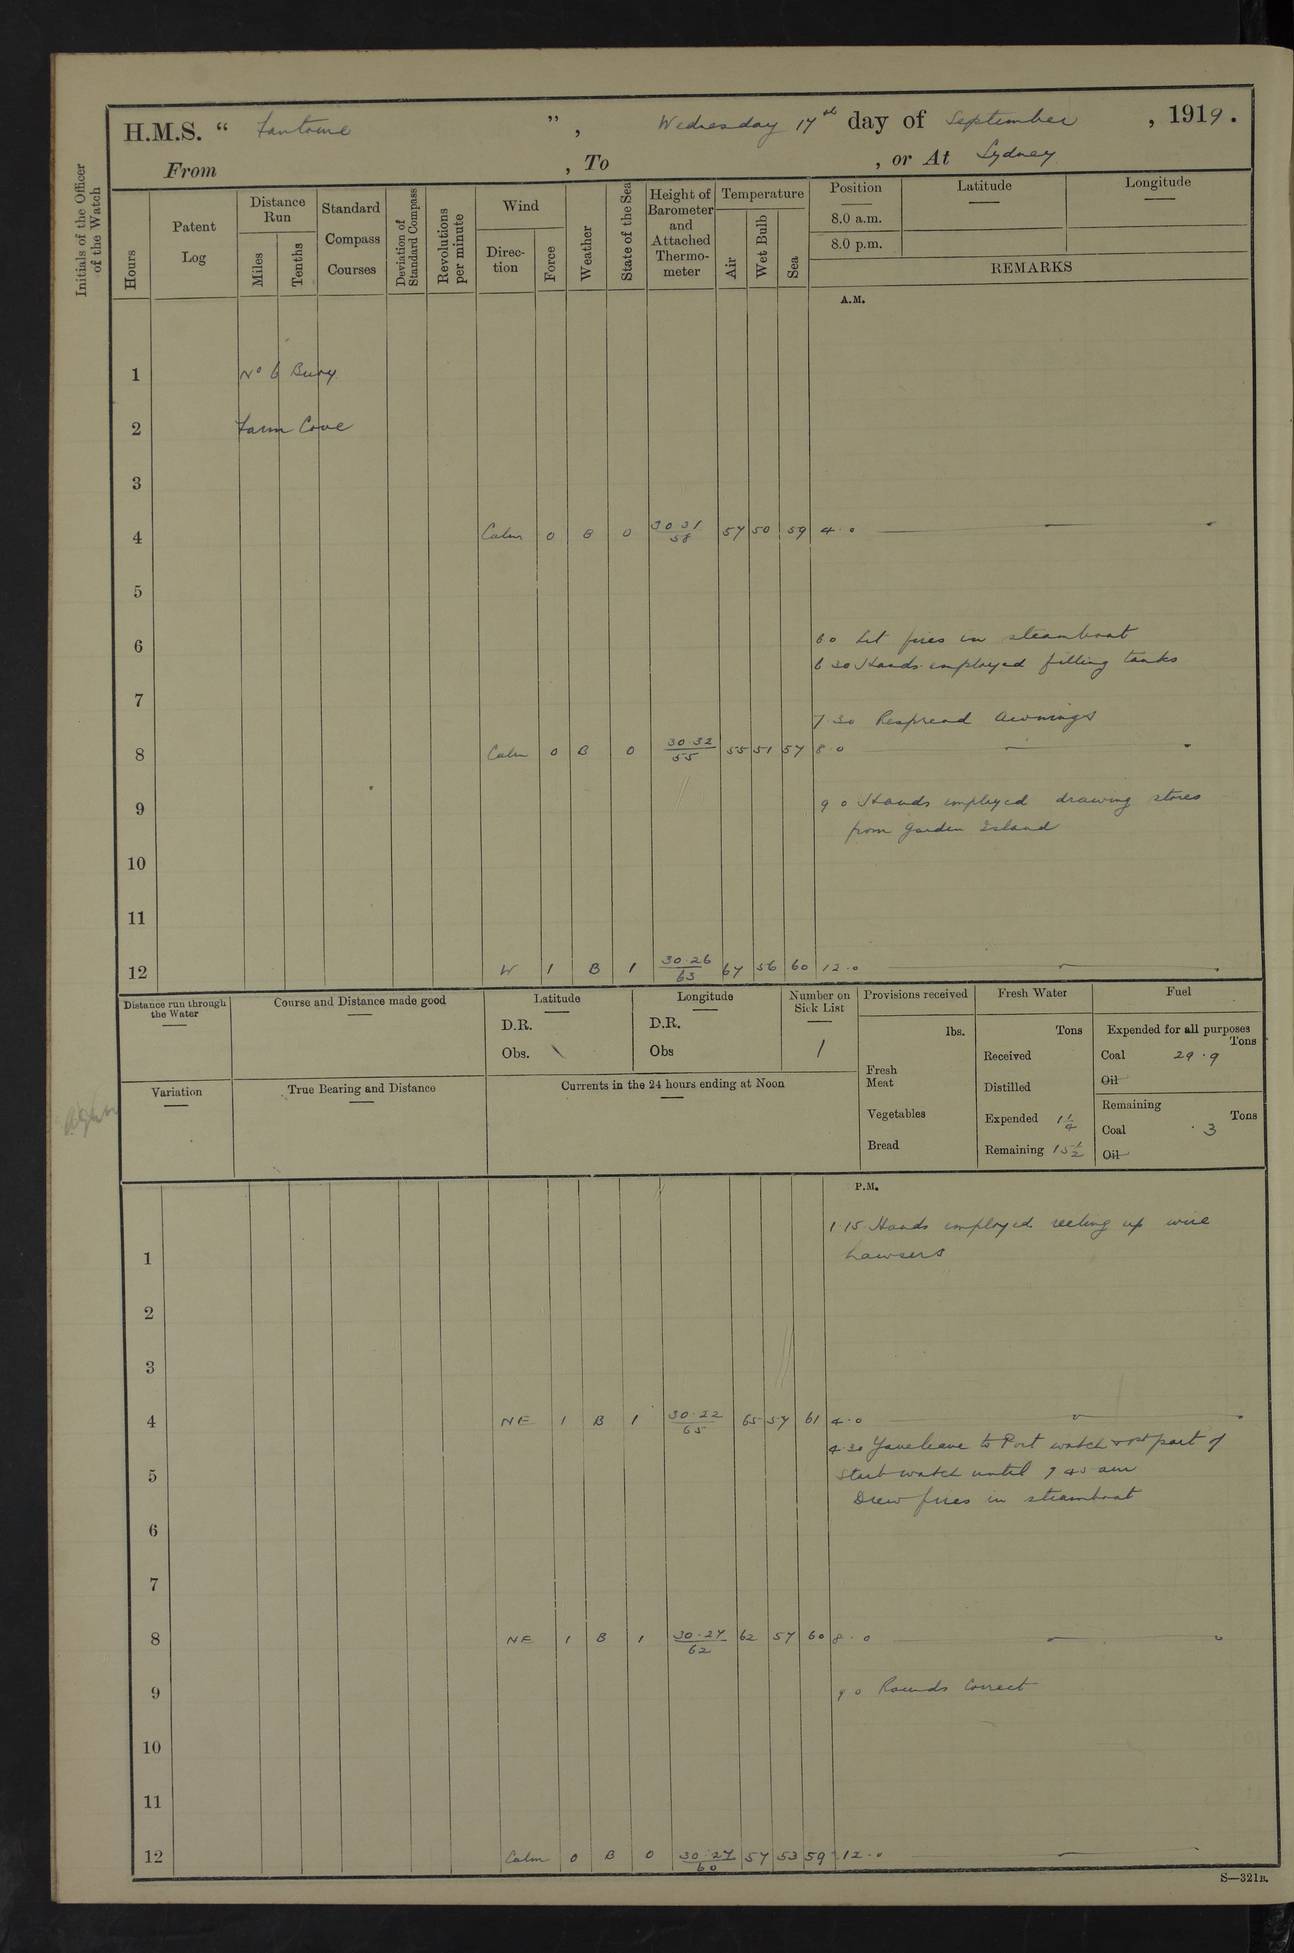 H.M.S. “ Fantome ” , Wednesday 17th day of September , 1919.
From , To , or At Sydney
Initials of the Officer of the Watch
Hours
Patent Log
Distance Run
Miles
Tenths
Standard Compass Courses
Deviation of Standard Compass
Revolutions per minute
Wind
Direc-tion
Force
Weather
State of the Sea
Height of Barometer and Attached Thermo-meter
Temperature
Air
Wet Bulb
Sea
Position Latitude Longitude
8.0 a.m.
8.0 p.m.
REMARKS
A.M.
1 No 6 Buoy
2 Farm Cove
3
4 Calm 0 B 0 30 31 / 58 57 50 59 4.0
5
6 6 0 Lit fires in steamboat
6 30 Hands employed filling tanks
7
7 30 Respread Awnings
8 Calm 0 B 0 30.32 / 55 55 51 57 8.0
9 9 0 Hands employed drawing stores
from Garden Island
10
11
12 W 1 B 1 30.26 / 63 67 56 60 12.0
Distance run through the Water
Course and Distance made good
Latitude
D.R.
Obs.
Longitude
D.R.
Obs
Number on Sick List
1
Provisions received
lbs.
Fresh Meat
Vegetables
Bread
Fresh Water
Tons
Received
Distilled
Expended 1 1/4
Remaining 15 1/2
Fuel
Expended for all purposes
Tons
Coal 29.9
Oil
Remaining
Tons
Coal .3
Oil
Variation
True Bearing and Distance
Currents in the 24 hours ending at Noon
P.M.
1 15 Hands employed reeling up wire
1 hawsers
2
3
4 NE 1 B 1 30.22 / 65 65 57 61 4.0
4.30 Gave leave to Port watch & 1st part of
5 Starb watch until 7 45 am
Drew fires in steamboat
6
7
8 NE 1 B 1 30.27 / 62 62 57 60 8.0
9 9 0 Rounds Correct
10
11
12 Calm 0 B 0 30.27 / 60 57 53 59 12.0
S—321B.